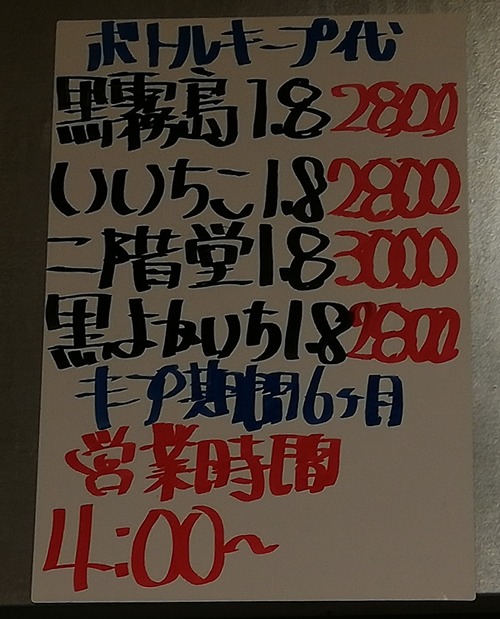 ボトルキープ代
黒霧島1.8 2800
いいちこ1.8 2800
二階堂1.8 3000
黒よかいち1.8 2800
キープ期間6ヶ月
営業時間
4:00~